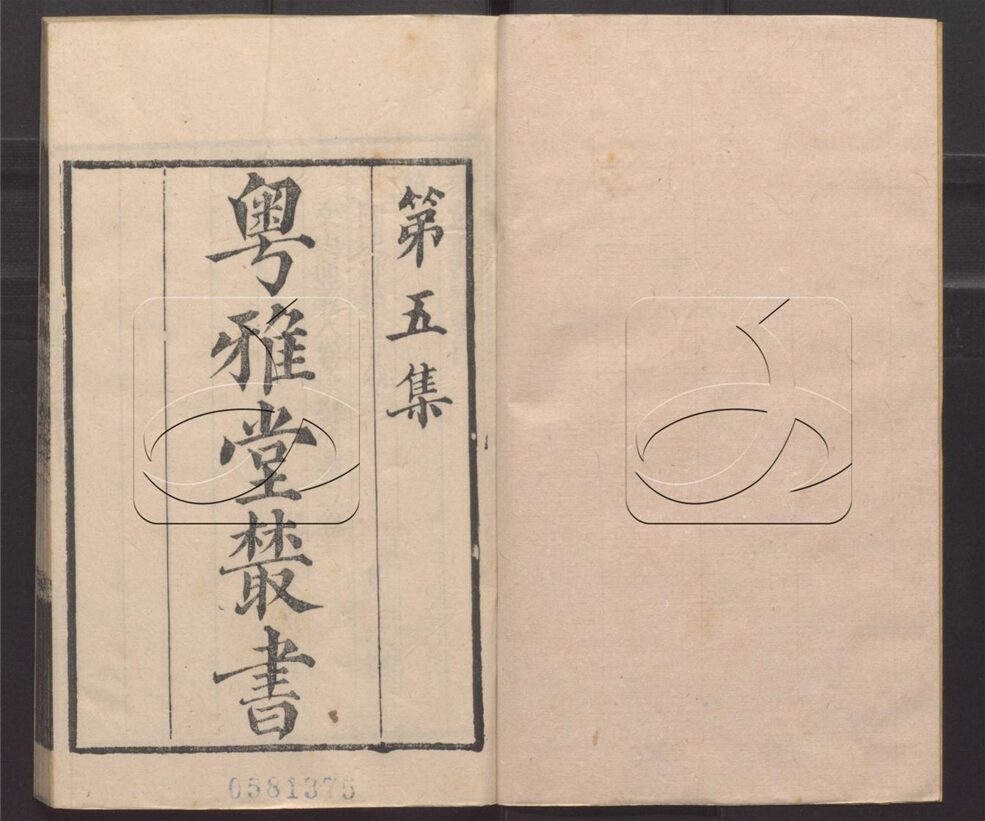 第五集
粤雅堂叢書
0581375